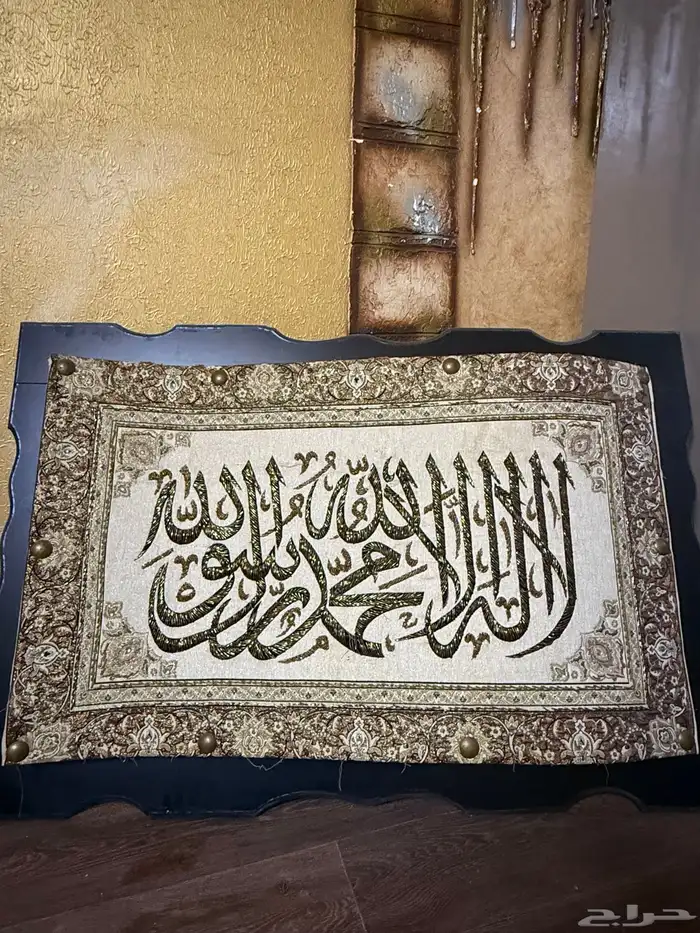 لا إله إلا الله محمد رسول الله
حراج